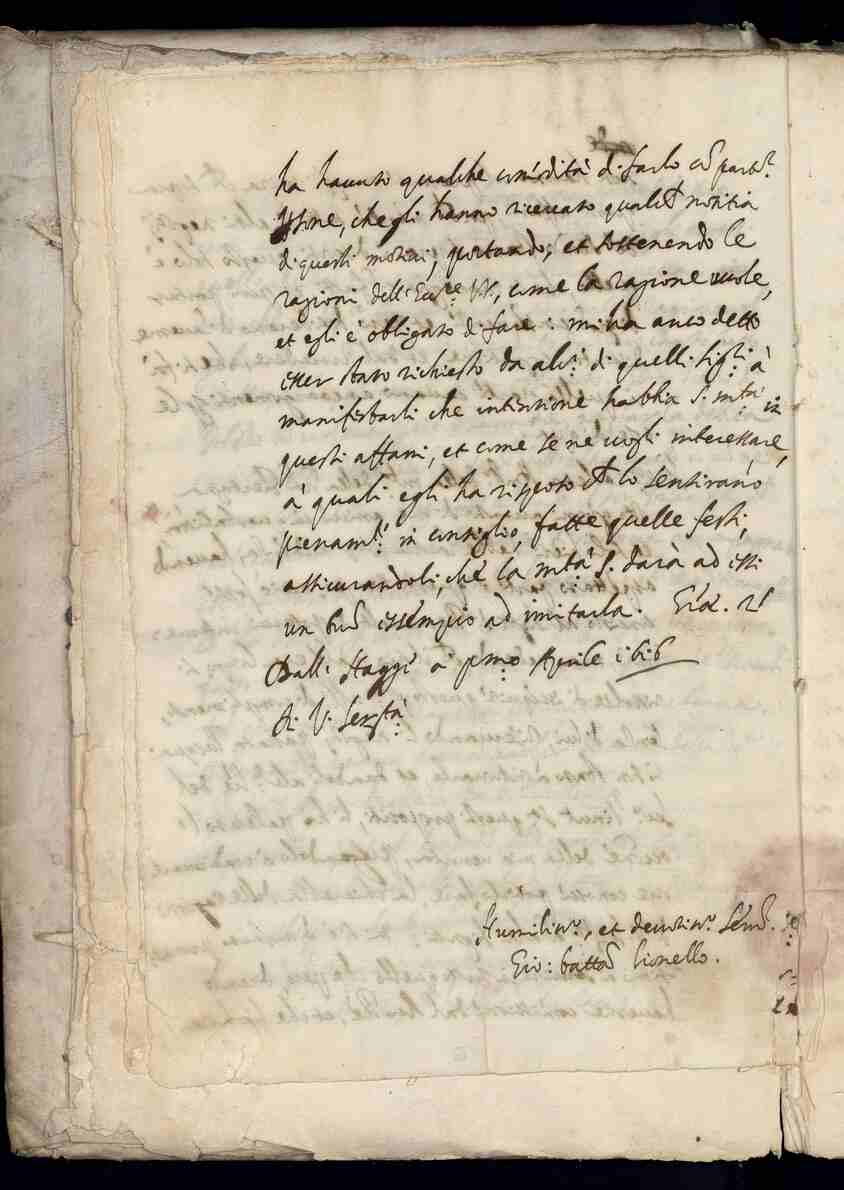 ha hauuto qualche com̃odità di farlo cõ partri.
p̱sone, che gli hanno ricercato qualche notitia
di questi motiui, portando, et sostenendo le
ragioni dell'Ecc.ze VV., come la ragione uuole,
et egli è obligato di fare: mi ha anco detto
esser stato richiesto da alc.i di quelli Sig.ri à
manifestarli che intentione habbia S. M.tà in
questi affari, et come se ne uogli interessare,
à quali egli ha risposto che lo sentirano
pienam.te in consiglio, fatte quelle feste,
assicurandoli, che la M.tà S. darà ad essi
un buõ essempio ad imitarla. Gratie. &c.
Dalli Haggi à primo Aprile 1616
Di V. Ser.tà
Humiliss.o, et deuotiss.o Ser.re
Gio: Batta Lionello.